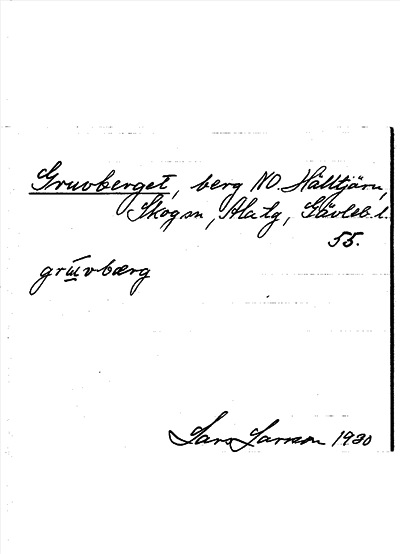 Gruvberget, berg NO. Hälltjärn,
Skogsn, Ala tg, Gävleb. l.
55.
grúvbærg
Lars Larsson 1930